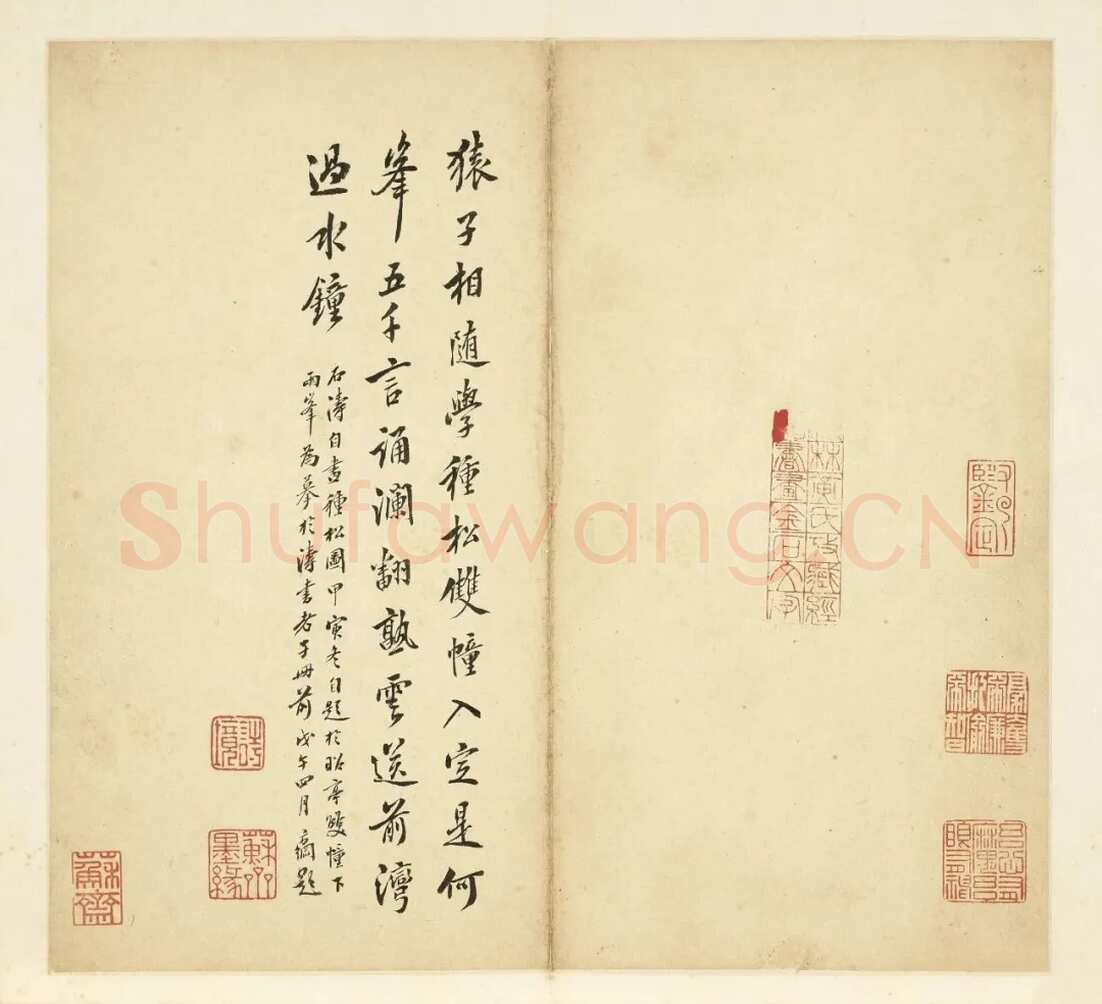 猿子相随學種松雙幢入定是何
峯五千言誦瀾翻熟雲送前灣
過水鐘
石濤自畫種松圖甲寅冬自題於昭亭雙幢下
兩峯為摹於濤書老子冊前戊午四月方綱題
詩境
蘇齋墨緣
蘇齋
Shufawang.CN